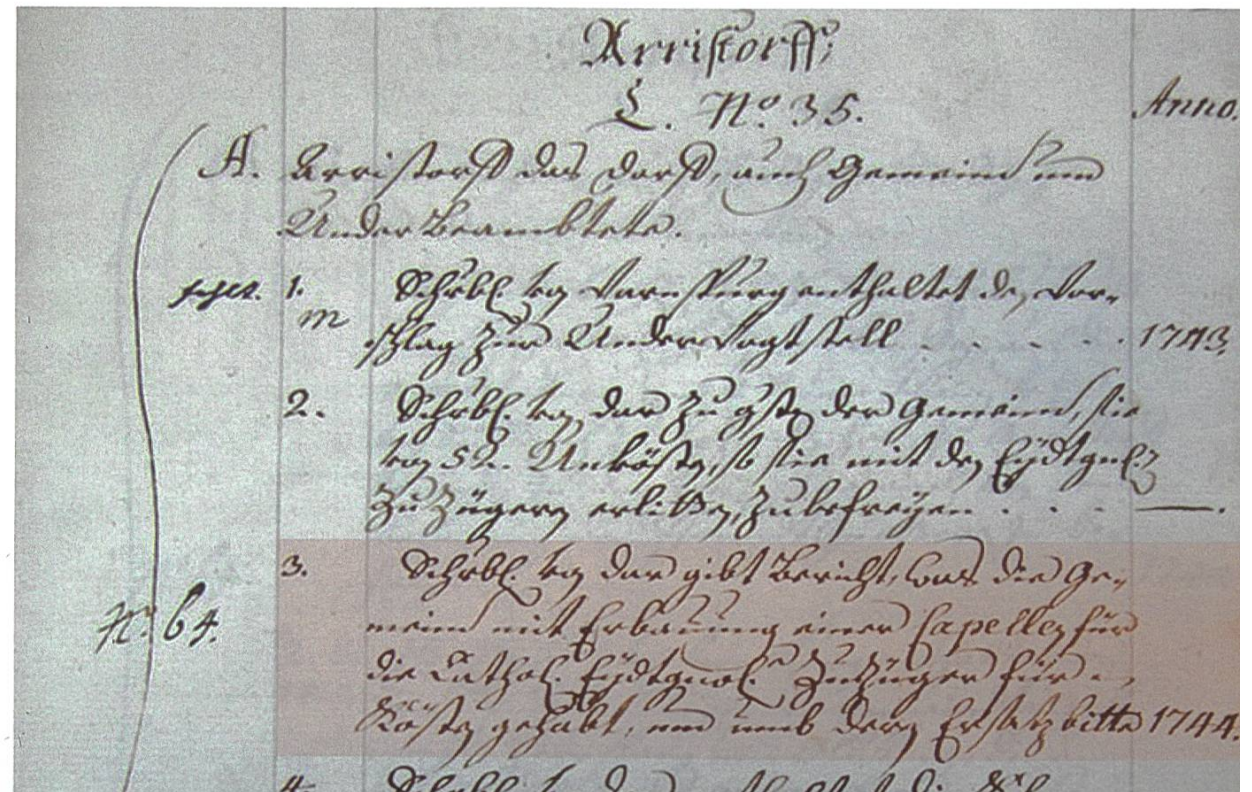 Arristorff;
L. No. 35.
Anno.
A. Arristorff das Dorff, auch Gemeind und
Under Beambtete.
1. Schrbl. von Varnspurg enthaltet den Vor-
m
schlag zur Undervogtstell - - - - 1743.
2. Schrbl. von dar zu gstn der Gemeind, sie
von 52. Unköstn, so sie mit den Eydtgnl.
Zuzügern erlitten, zubefreyen - - - —.
3. Schrbl. von dar gibt Bericht, was die Ge-
meind mit Erbauung einer Capellen für
No. 64.
die Cathol. Eydtgnoß. Zuzüger für
Köstn gehabt, und umb deren Ersatz bitte 1744.
4. Schrbl. von dar enthaltet die